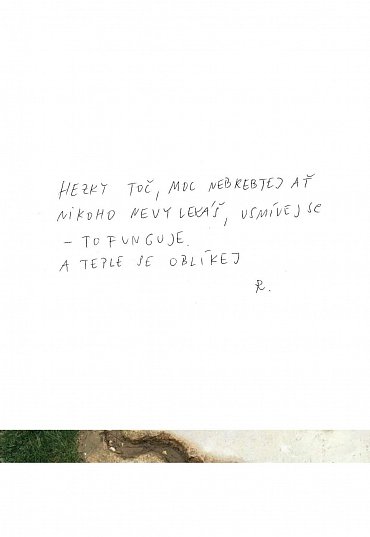 HEZKY TOČ, MOC NEBREBTEJ AŤ
NIKOHO NEVYLEKÁŠ, USMÍVEJ SE
– TO FUNGUJE.
A TEPLE SE OBLÍKEJ
R.